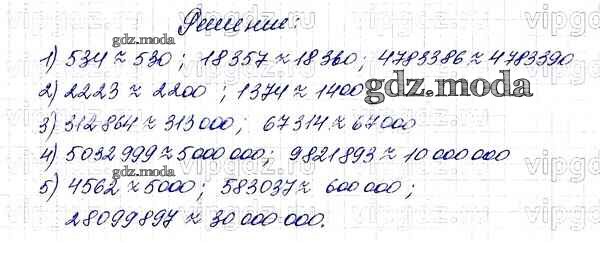 Решение:
1) 534 ≈ 530; 18357 ≈ 18360; 4783386 ≈ 4783390
gdz.moda
2) 2223 ≈ 2200; 1374 ≈ 1400
gdz.moda
gdz.moda
3) 312864 ≈ 313000; 67314 ≈ 67000
4) 5032999 ≈ 5000000; 9821893 ≈ 10000000
gdz.moda
5) 4562 ≈ 5000; 583037 ≈ 600000;
28099897 ≈ 30000000.
gdz.moda